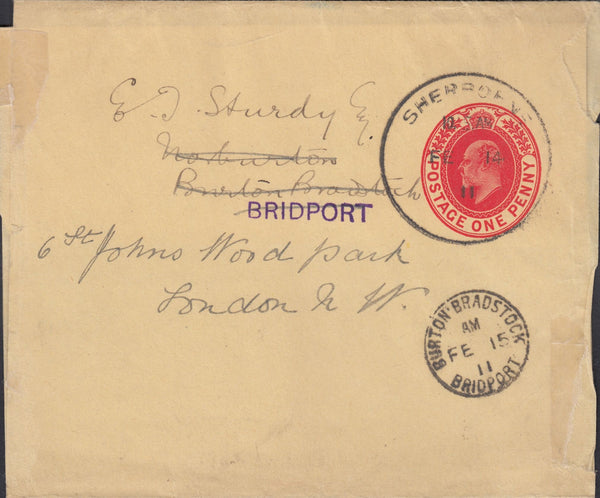 E. T. Sturdy Esq.
Norburton
Burton Bradstock
BRIDPORT
6 St Johns Wood Park
London N W.
SHERBORNE
FE 14
11
POSTAGE ONE PENNY
BURTON·BRADSTOCK
AM
FE 15
11
BRIDPORT